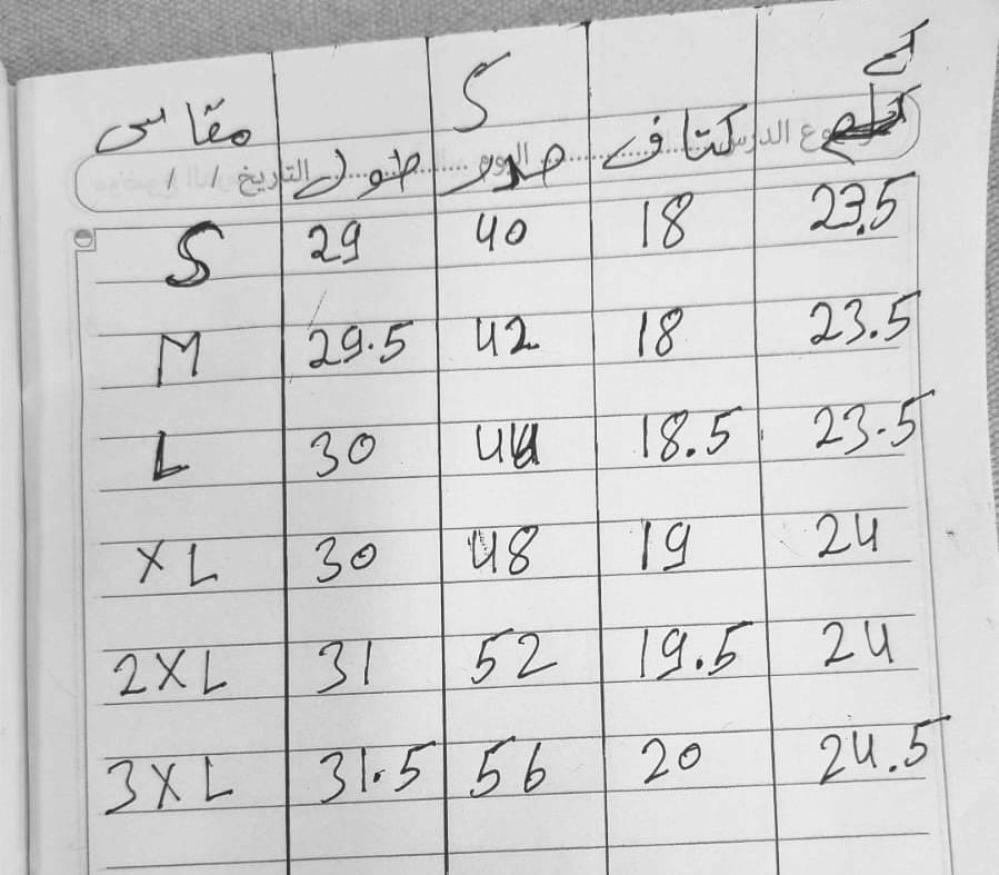 S
كم
مقاس طول صدر كتاف
موضوع الدرس اليوم التاريخ / /
S 29 40 18 23.5
M 29.5 42 18 23.5
L 30 44 18.5 23.5
XL 30 48 19 24
2XL 31 52 19.5 24
3XL 31.5 56 20 24.5